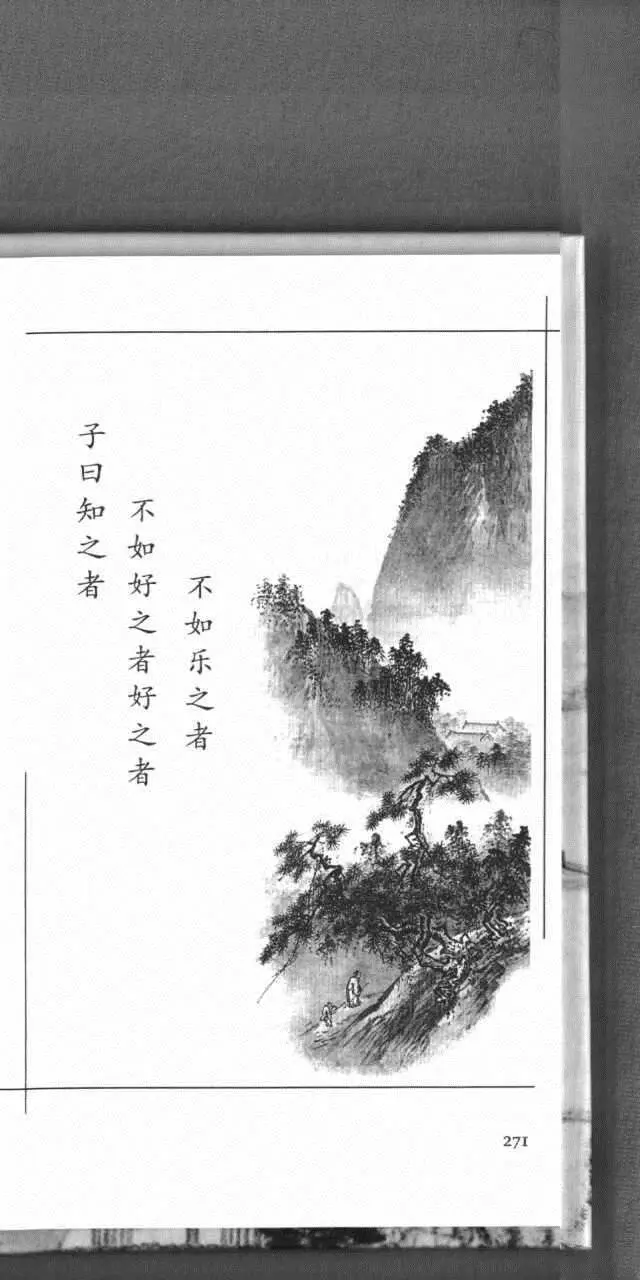 子曰知之者
不如好之者好之者
不如乐之者
271